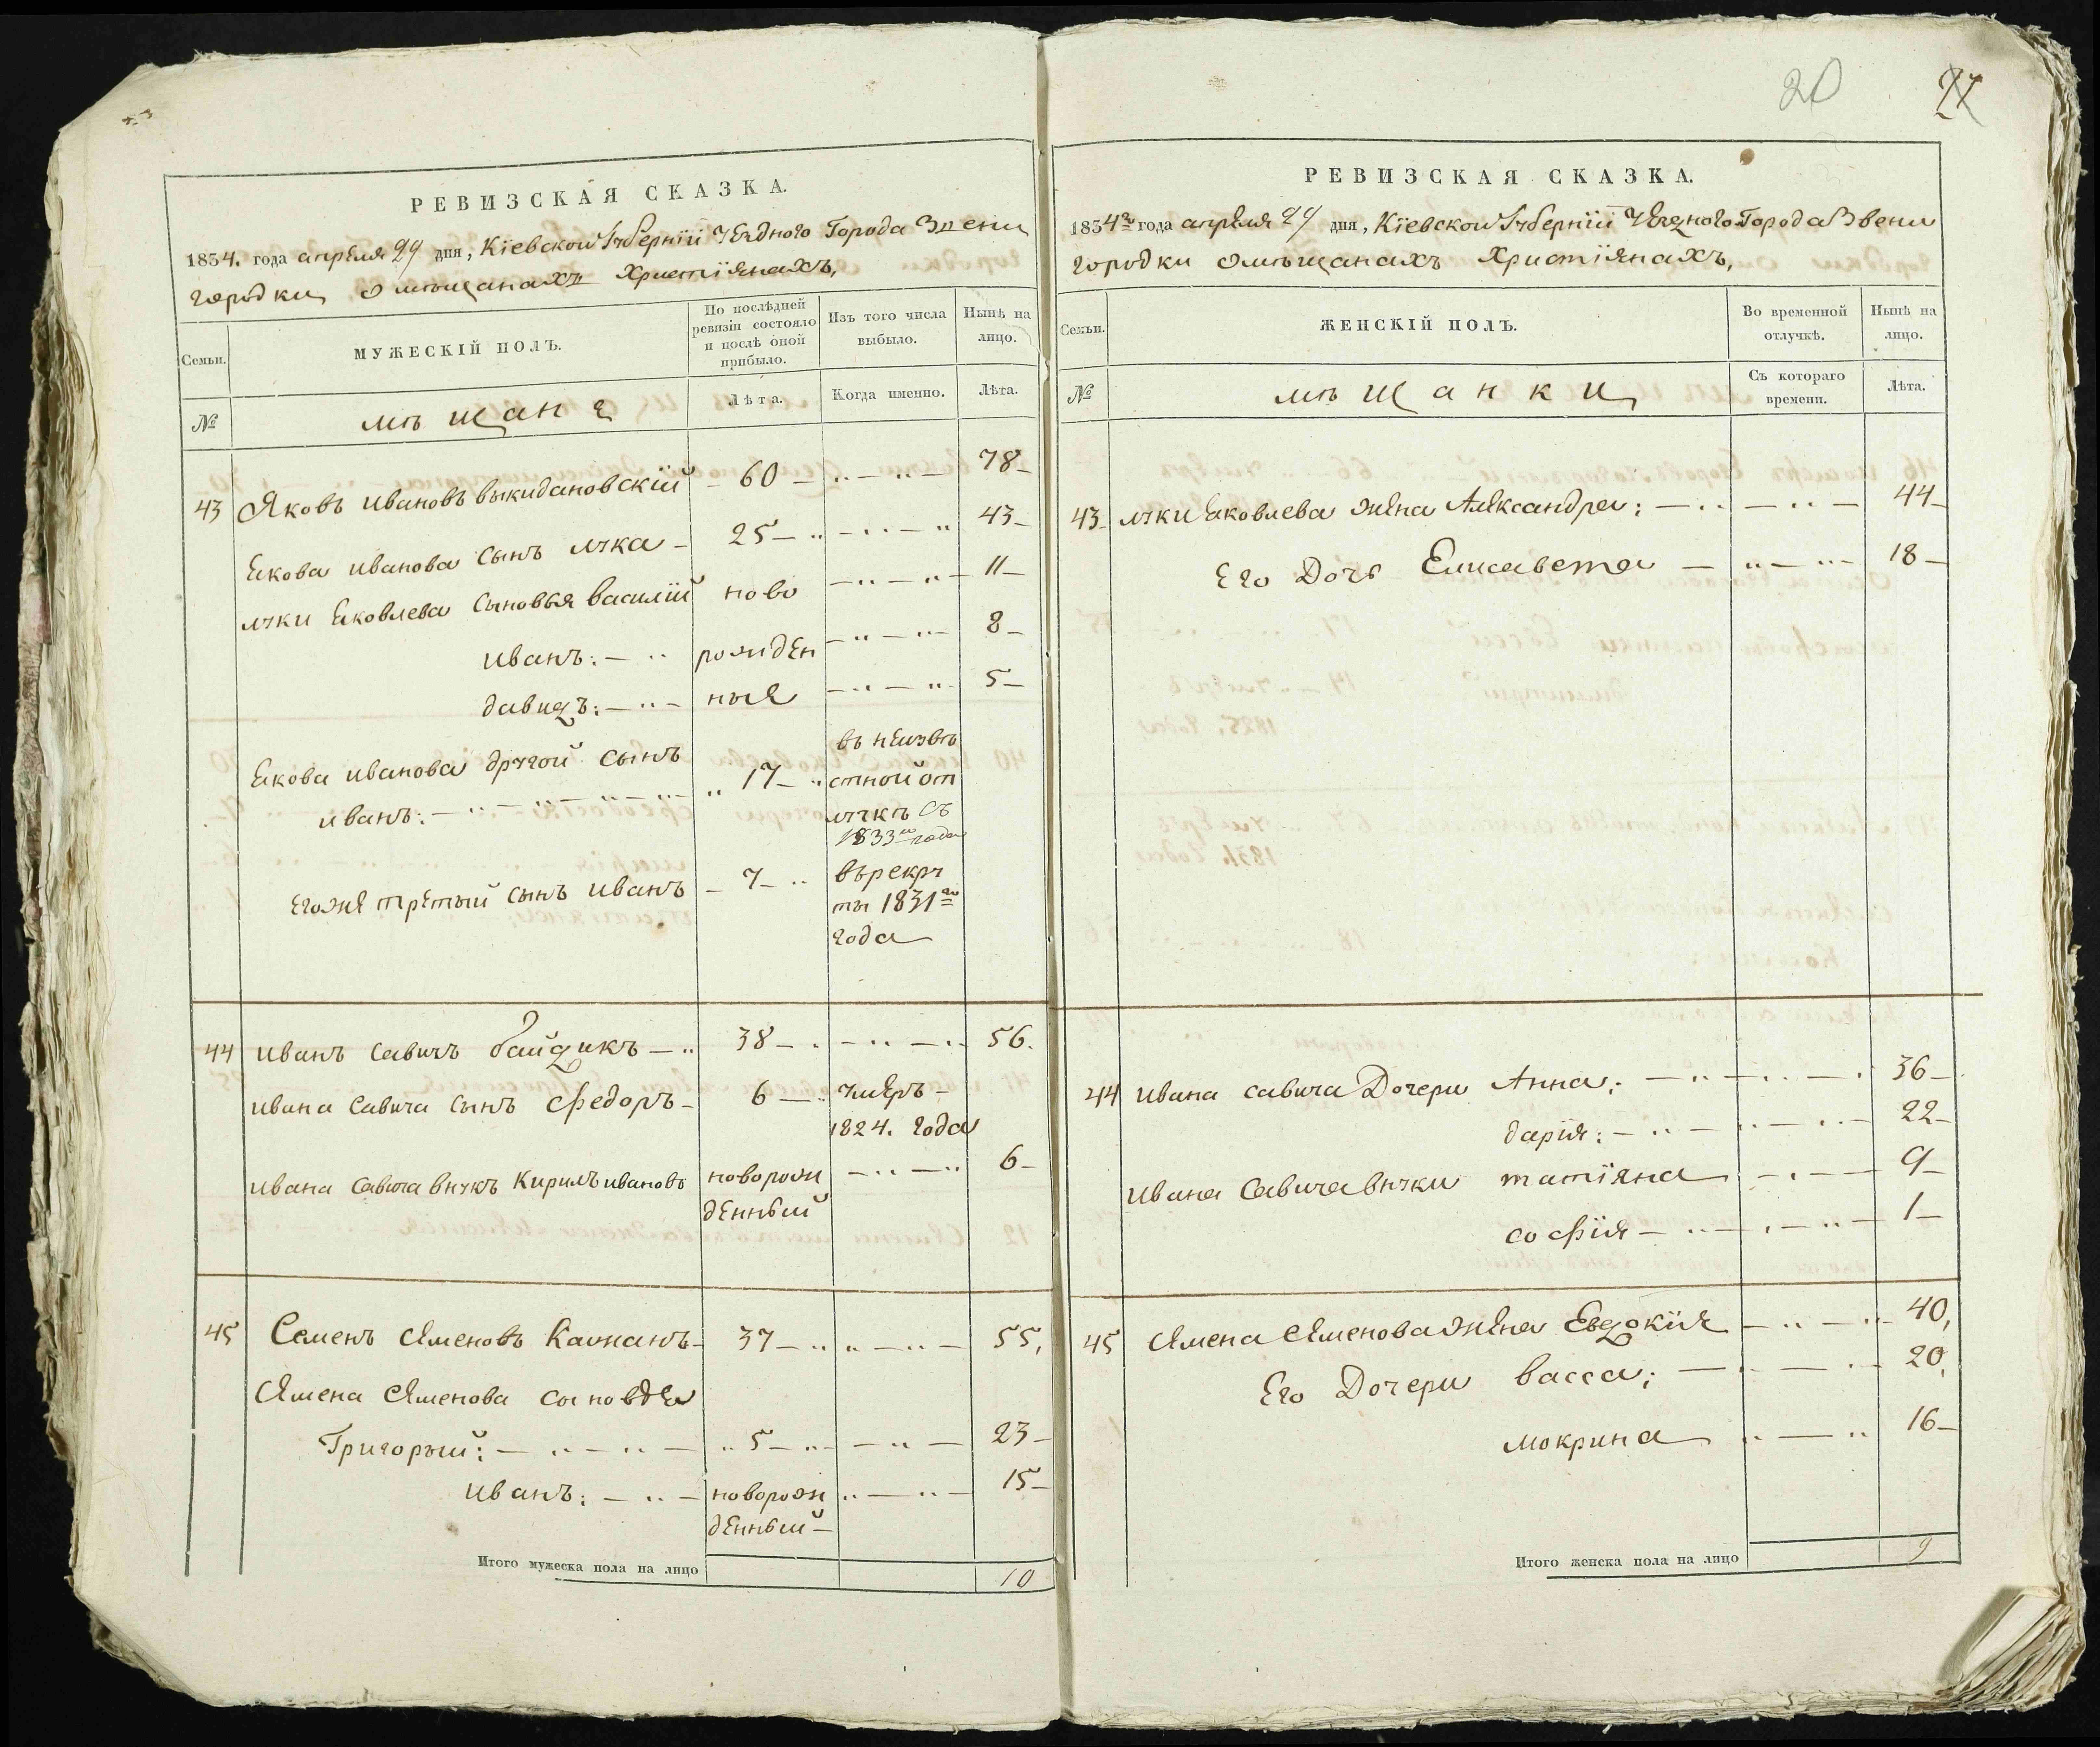 20
РЕВИЗСКАЯ СКАЗКА.
1834. года апреля 29 дня, Кіевской Губерніи Уезднаго Города Звени
городки о мѣщанахъ Христіянахъ,
Семьи.
МУЖЕСКІЙ ПОЛЪ.
По послѣдней ревизіи состояло и послѣ оной прибыло.
Изъ того числа выбыло.
Нынѣ на лицо.
№
мѣщане
Лѣта.
Когда именно.
Лѣта.
43 Яковъ Ивановъ Выкидановскій 60 78
Якова Иванова сынъ Лука 25 43
Луки Яковлева сыновья Василій ново 11
Иванъ: рожден 8
Давидъ: ныя 5
Якова Иванова другой сынъ
Иванъ: 17
въ неизвѣ
стной от
лучкѣ съ
1833го года
Егоже третый сынъ Иванъ 7
въ рекру
ты 1831го
года
44 Иванъ Савичъ Байдикъ 38 56.
Ивана Савича сынъ Федоръ 6 умеръ
1824. года
Ивана Савича внукъ Кирилъ Ивановъ новорож 6
денный
45 Семенъ Семеновъ Каунанъ 37 55,
Семена Семенова сыновья
Григорый: 5 23
Иванъ: новорож 15
денный
Итого мужеска пола на лицо 10
РЕВИЗСКАЯ СКАЗКА.
1834го года апреля 29 дня, Кіевской Губерніи Уезднаго Города Звени
городки о мѣщанахъ Христіянахъ,
Семьи.
ЖЕНСКІЙ ПОЛЪ.
Во временной отлучкѣ.
Нынѣ на лицо.
№
мѣщанки
Съ котораго времени.
Лѣта.
43 Луки Яковлева жена Александра; 44
Его Дочь Елисавета 18
44 Ивана Савича Дочери Анна; 36
Дарія: 22
Ивана Савича внуки Татіяна 9
Софія 1
45 Семена Семенова жена Евдокія 40,
Его Дочери Васса; 20,
Мокрина 16
Итого женска пола на лицо 9